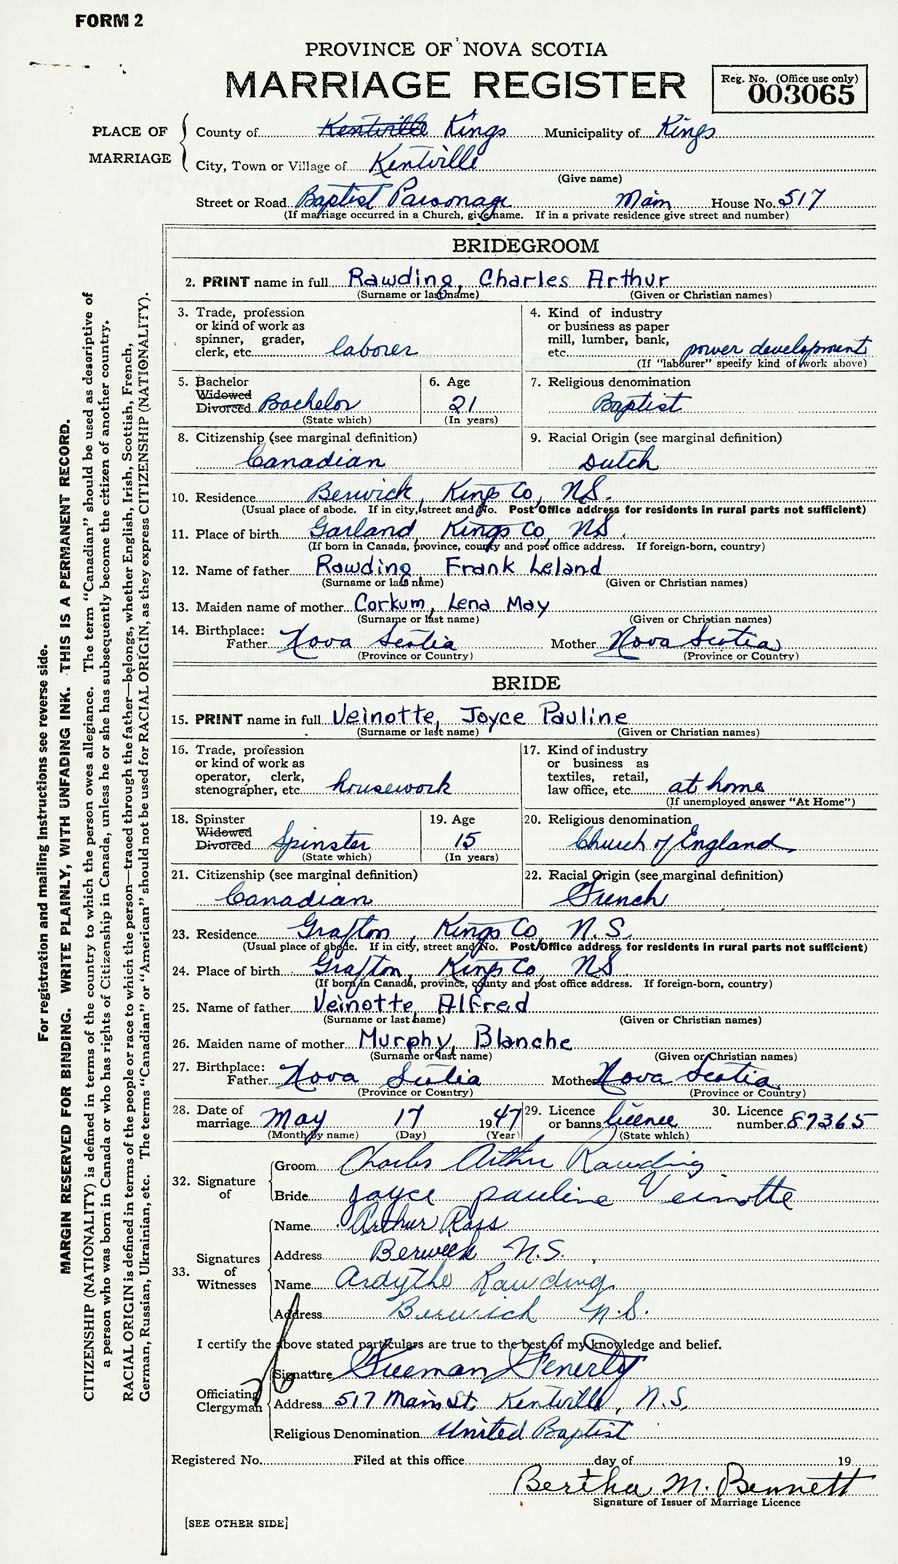 FORM 2
PROVINCE OF NOVA SCOTIA
MARRIAGE REGISTER
Reg. No. (Office use only)
003065
PLACE OF MARRIAGE
County of Kentville Kings Municipality of Kings
City, Town or Village of Kentville
(Give name)
Street or Road Baptist Parsonage Main House No. 517
(If marriage occurred in a Church, give name. If in a private residence give street and number)
BRIDEGROOM
2. PRINT name in full Rawding, Charles Arthur
(Surname or last name) (Given or Christian names)
3. Trade, profession or kind of work as spinner, grader, clerk, etc. laborer
4. Kind of industry or business as paper mill, lumber, bank, etc. power development
(If "labourer" specify kind of work above)
5. Bachelor Widowed Divorced Bachelor
(State which)
6. Age 21
(In years)
7. Religious denomination
Baptist
8. Citizenship (see marginal definition)
Canadian
9. Racial Origin (see marginal definition)
Dutch
10. Residence Berwick, Kings Co, NS.
(Usual place of abode. If in city, street and No. Post Office address for residents in rural parts not sufficient)
11. Place of birth Garland, Kings Co, NS.
(If born in Canada, province, county and post office address. If foreign-born, country)
12. Name of father Rawding, Frank Leland
(Surname or last name) (Given or Christian names)
13. Maiden name of mother Corkum, Lena May
(Surname or last name) (Given or Christian names)
14. Birthplace:
Father Nova Scotia Mother Nova Scotia
(Province or Country) (Province or Country)
BRIDE
15. PRINT name in full Veinotte, Joyce Pauline
(Surname or last name) (Given or Christian names)
16. Trade, profession or kind of work as operator, clerk, stenographer, etc. housework
17. Kind of industry or business as textiles, retail, law office, etc. at home
(If unemployed answer "At Home")
18. Spinster Widowed Divorced Spinster
(State which)
19. Age 15
(In years)
20. Religious denomination
Church of England
21. Citizenship (see marginal definition)
Canadian
22. Racial Origin (see marginal definition)
French
23. Residence Grafton, Kings Co, N.S.
(Usual place of abode. If in city, street and No. Post Office address for residents in rural parts not sufficient)
24. Place of birth Grafton, Kings Co, NS
(If born in Canada, province, county and post office address. If foreign-born, country)
25. Name of father Veinotte, Alfred
(Surname or last name) (Given or Christian names)
26. Maiden name of mother Murphy, Blanche
(Surname or last name) (Given or Christian names)
27. Birthplace:
Father Nova Scotia Mother Nova Scotia
(Province or Country) (Province or Country)
28. Date of marriage May 17 1947
(Month by name) (Day) (Year)
29. Licence or banns licence
(State which)
30. Licence number 87365
32. Signature of
Groom Charles Arthur Rawding
Bride Joyce pauline Veinotte
33. Signatures of Witnesses
Name Arthur Ross
Address Berwick N.S.
Name Ardythe Rawding
Address Berwick N.S.
I certify the above stated particulars are true to the best of my knowledge and belief.
Officiating Clergyman
Signature Freeman Fenerty
Address 517 Main St. Kentville, N.S.
Religious Denomination United Baptist
Registered No. Filed at this office day of 19
Bertha M. Bennett
Signature of Issuer of Marriage Licence
[SEE OTHER SIDE]
For registration and mailing instructions see reverse side.
MARGIN RESERVED FOR BINDING. WRITE PLAINLY, WITH UNFADING INK. THIS IS A PERMANENT RECORD.
CITIZENSHIP (NATIONALITY) is defined in terms of the country to which the person owes allegiance. The term "Canadian" should be used as descriptive of
a person who was born in Canada or who has rights of Citizenship in Canada, unless he or she has subsequently become the citizen of another country.
RACIAL ORIGIN is defined in terms of the people or race to which the person—traced through the father—belongs, whether English, Irish, Scottish, French,
German, Russian, Ukrainian, etc. The terms "Canadian" or "American" should not be used for RACIAL ORIGIN, as they express CITIZENSHIP (NATIONALITY).